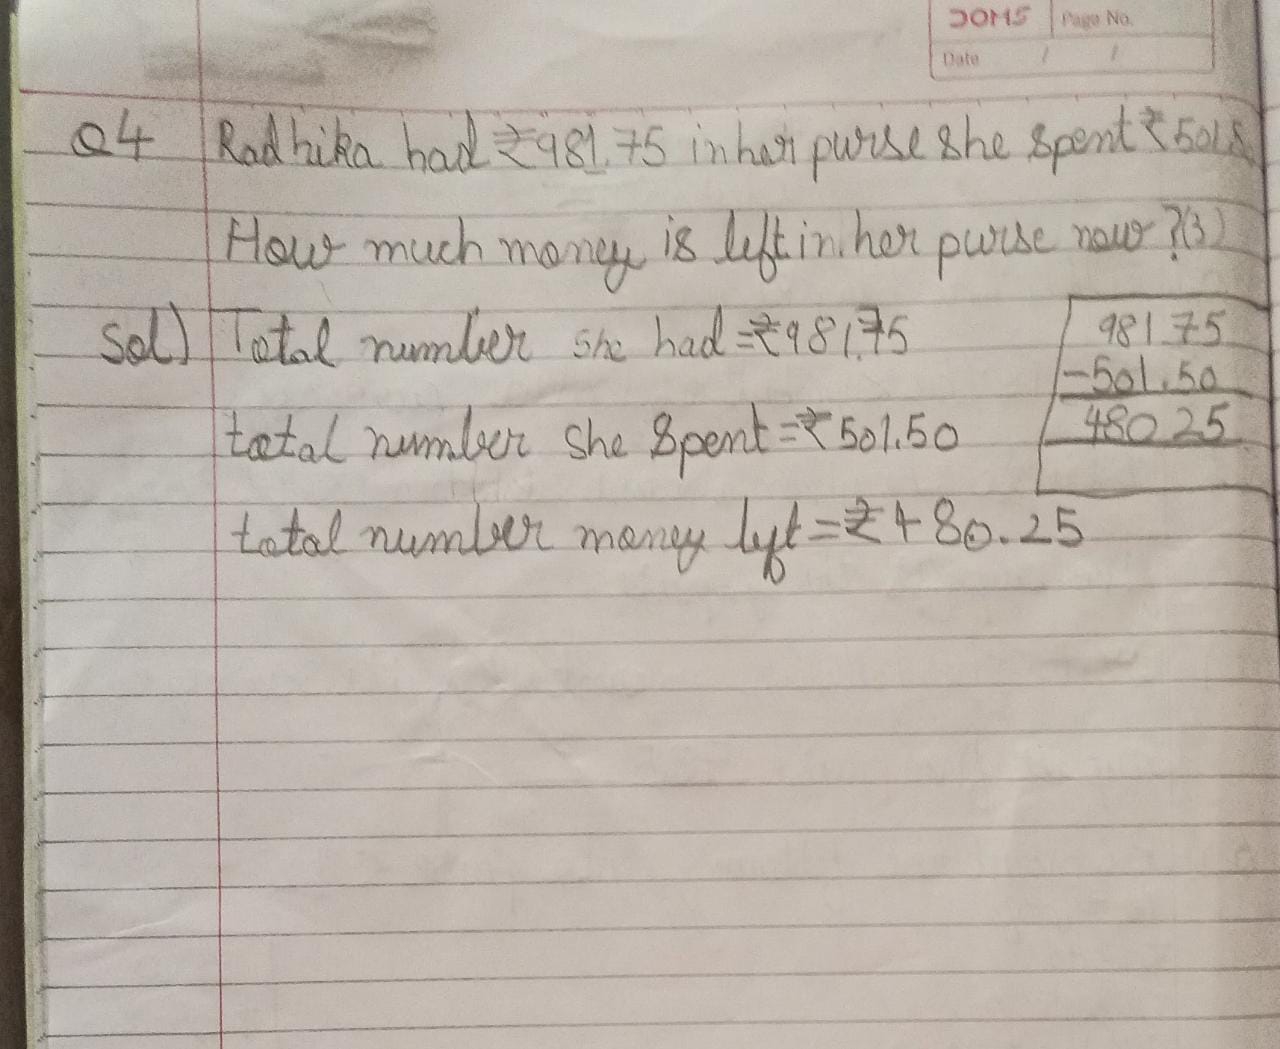 DOMS Page No.
Date / /
Q4 Radhika had ₹981.75 in her purse she spent ₹501.5
How much money is left in her purse now ?(3)
Sol) Total number she had = ₹981.75
981.75
-501.50
total number she spent = ₹501.50
480 25
total number money lyt = ₹480.25